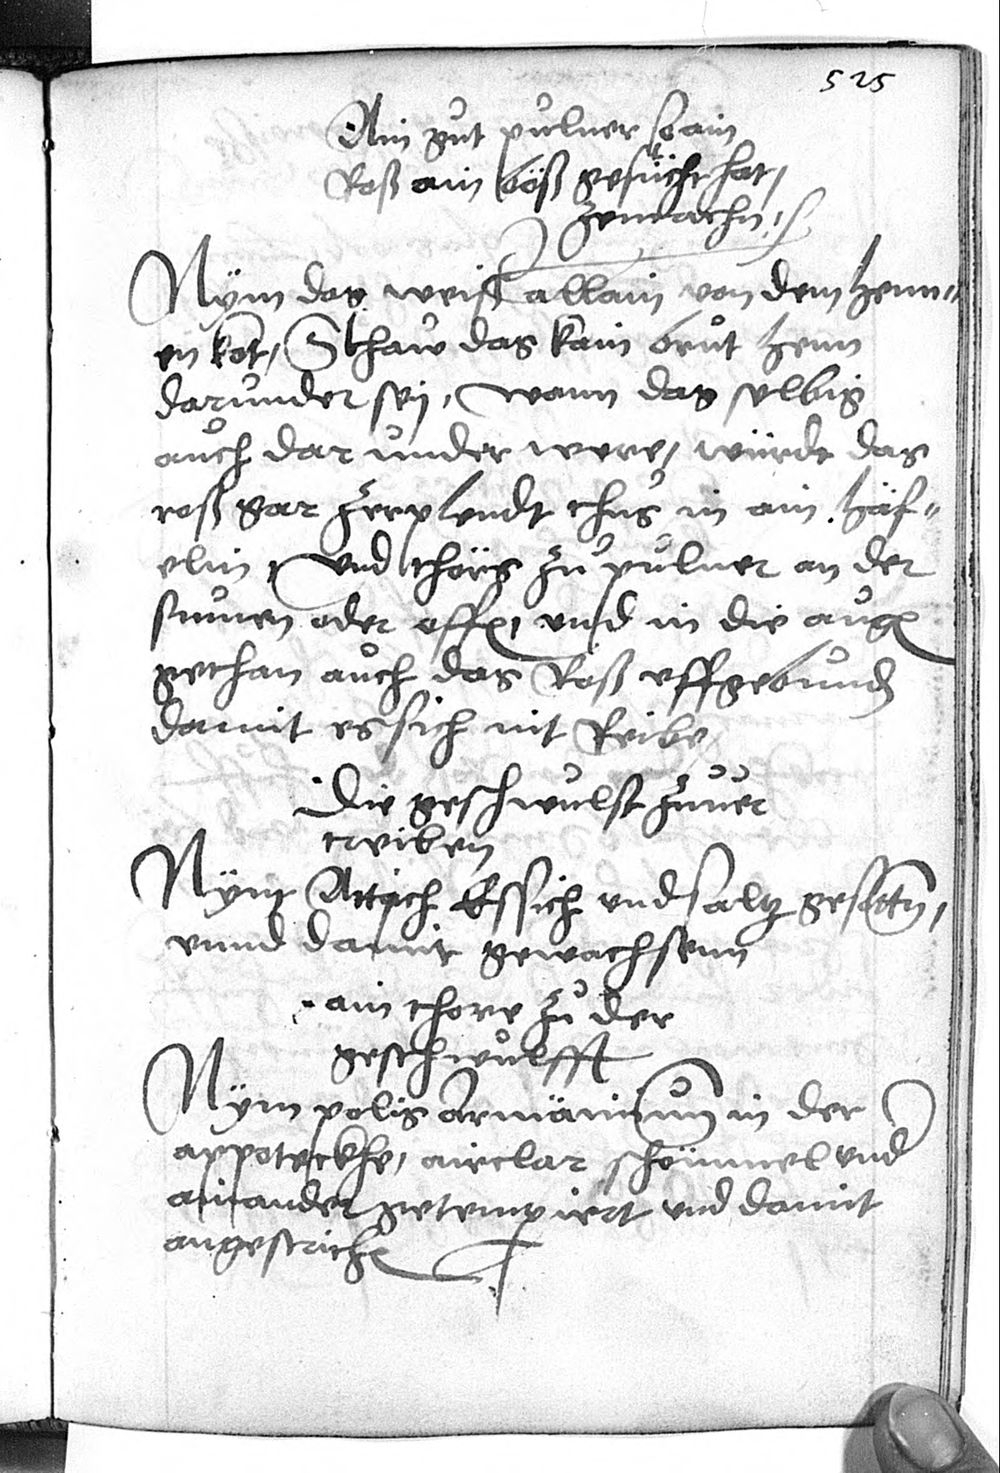 525
Ain gut puluer so ain
Roß ain böß gesücht hat,
zemachn.
Nÿm das weiß allain von dem henn-
en kot, Schaw das kain brut henn
darunder seÿ, wann das selbig
auch dar under were, würdt das
roß gar zerplendt thus in ain häf-
elin, und thörs zu puluer an der
sunnen oder offen, und in die augen
gethan auch das Roß uffgebunden
damit es sich nit Reibe
Die geschwulst zuuer
treiben
Nÿm Attich Essich und saltz gesottn,
unnd damit gewachsenn
ain thore zu der
geschwulsst
Nÿm polis Armänicum in der
appoteckhe, airclar und
ainander getempiert und damit
angestrichen